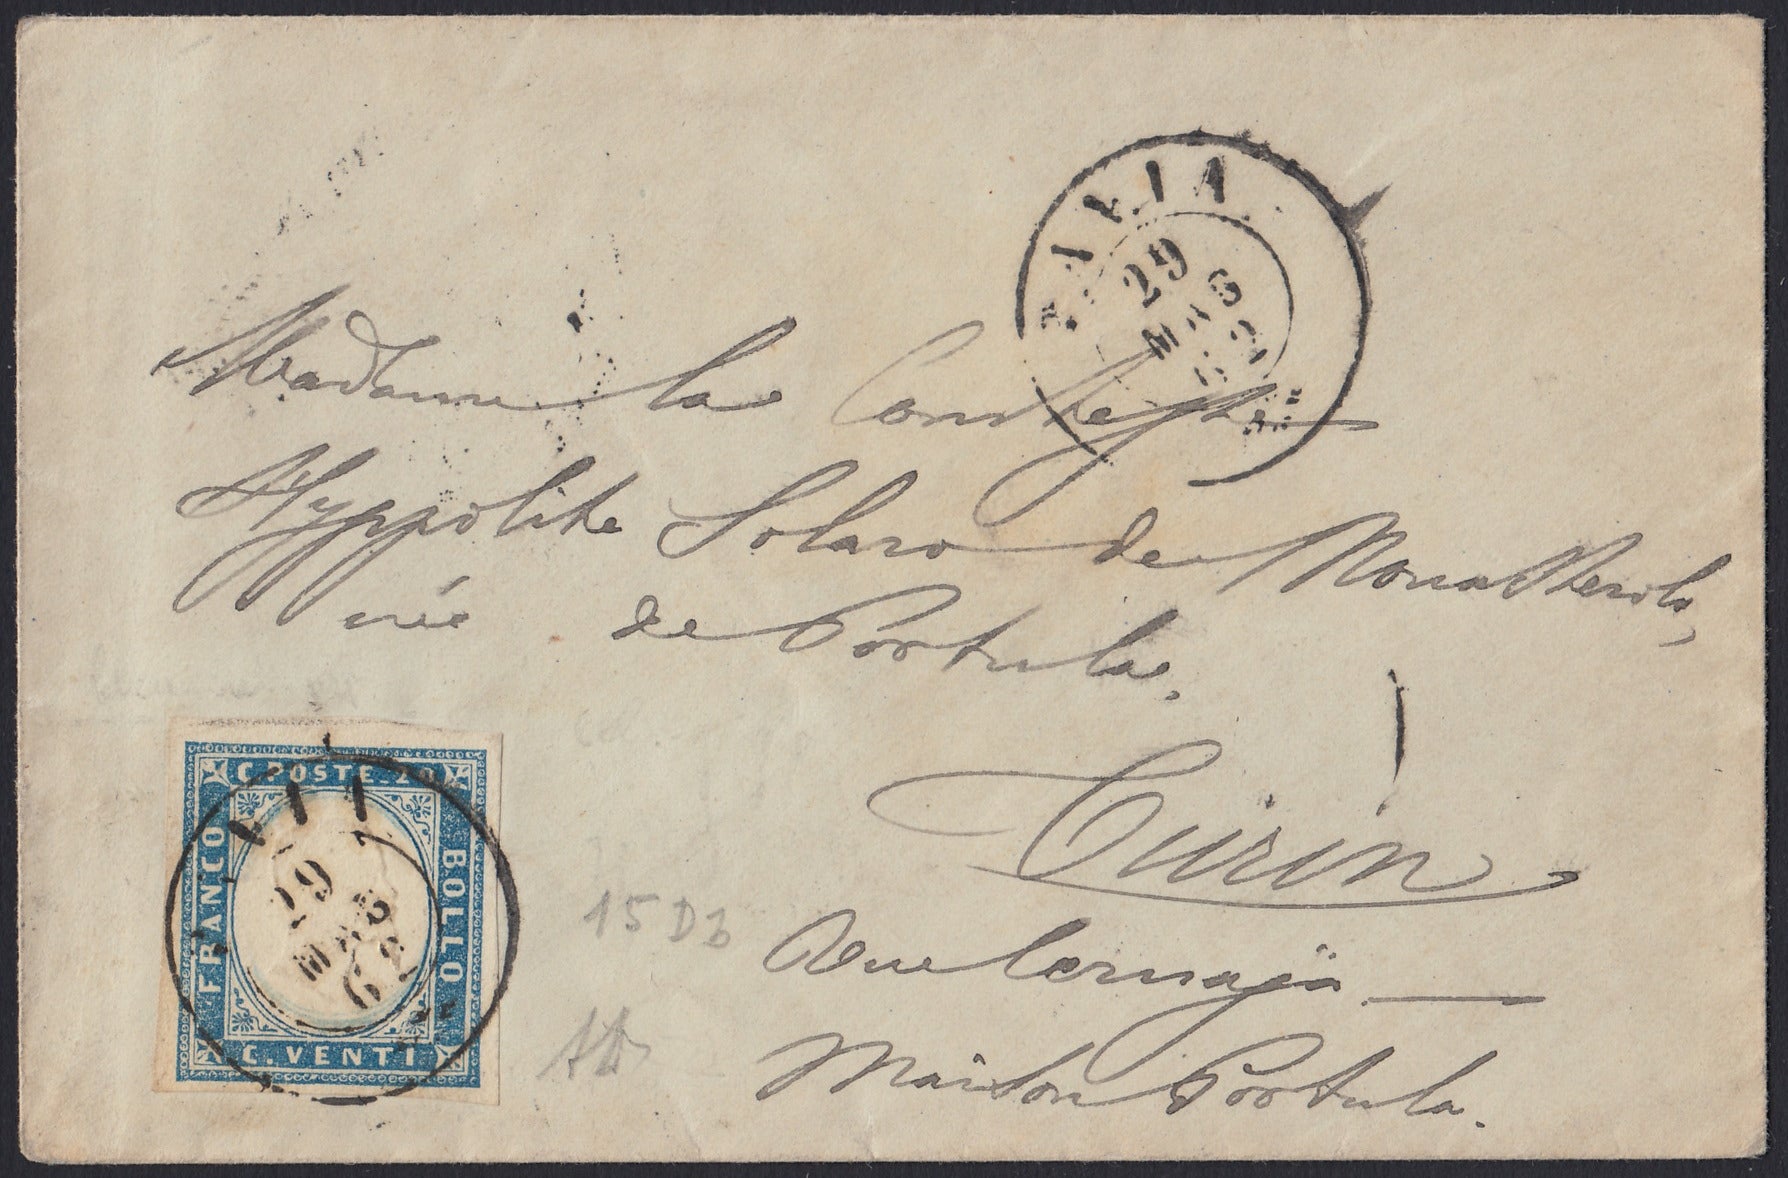 PAVIA
29
MAG
62
Madame la Comtesse
Hyppolite Solaro de Monasterolo,
née de Portula.
Turin
Rue Cernaja
Maison Portula.
C. POSTE. 20
FRANCO
BOLLO
C. VENTI
29
MAG
62
15 Db